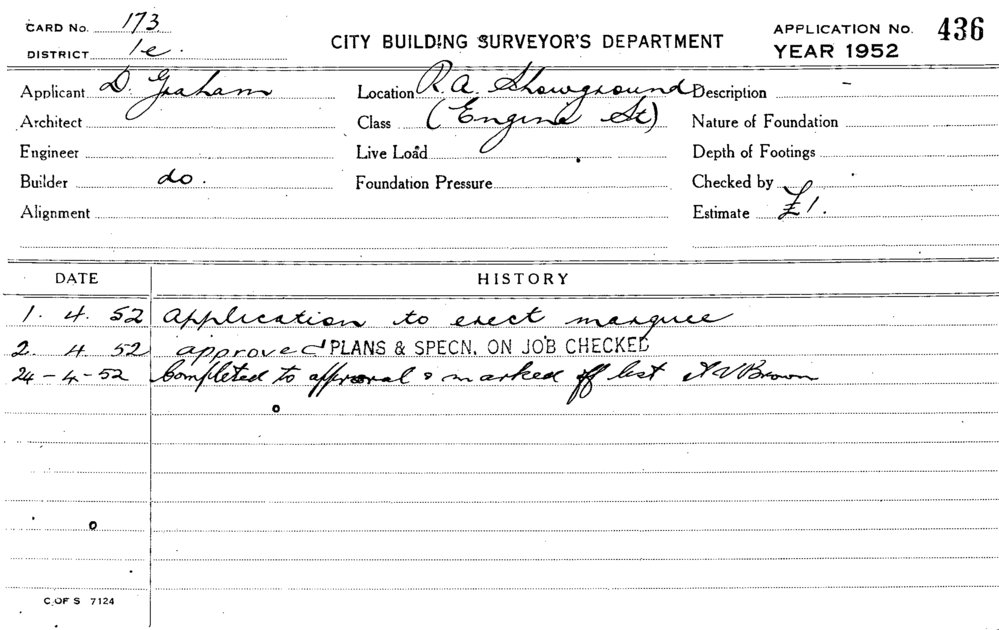 CARD No. 173
DISTRICT 1e.
CITY BUILDING SURVEYOR'S DEPARTMENT
APPLICATION No. 436
YEAR 1952
Applicant D. Graham
Location R.A. Showground
Description -
Architect
Class (Engine St)
Nature of Foundation
Engineer
Live Load
Depth of Footings
Builder do.
Foundation Pressure
Checked by
Alignment
Estimate £1.
DATE HISTORY
1. 4. 52 Application to erect marquee
2. 4. 52 approved PLANS & SPECN. ON JOB CHECKED
24-4-52 Completed to approval & marked off list Brown
C OF S 7124